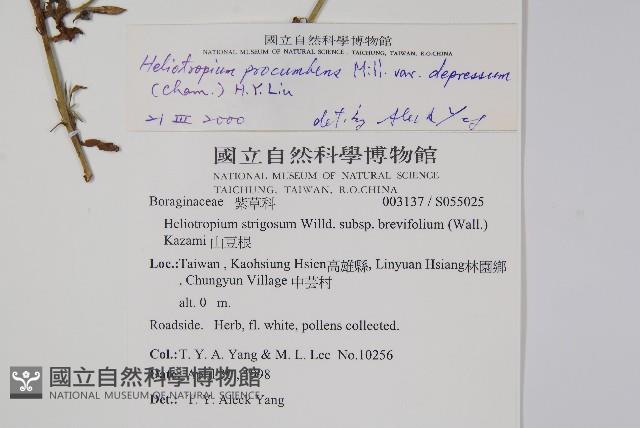 國立自然科學博物館
NATIONAL MUSEUM OF NATURAL SCIENCE, TAICHUNG, TAIWAN, R.O.CHINA
Heliotropium procumbens Mill. var. depressum
(Cham.) H.Y. Liu
21 III 2000 det. by Aleck Yang
國立自然科學博物館
NATIONAL MUSEUM OF NATURAL SCIENCE
TAICHUNG, TAIWAN, R.O.CHINA
Boraginaceae 紫草科 003137 / S055025
Heliotropium strigosum Willd. subsp. brevifolium (Wall.)
Kazami 山豆根
Loc.:Taiwan , Kaohsiung Hsien高雄縣, Linyuan Hsiang林園鄉
, Chungyun Village 中芸村
alt. 0 m.
Roadside. Herb, fl. white, pollens collected.
Col.:T. Y. A. Yang & M. L. Lee No.10256
國立自然科學博物館
NATIONAL MUSEUM OF NATURAL SCIENCE
Det.: T. Y. Aleck Yang